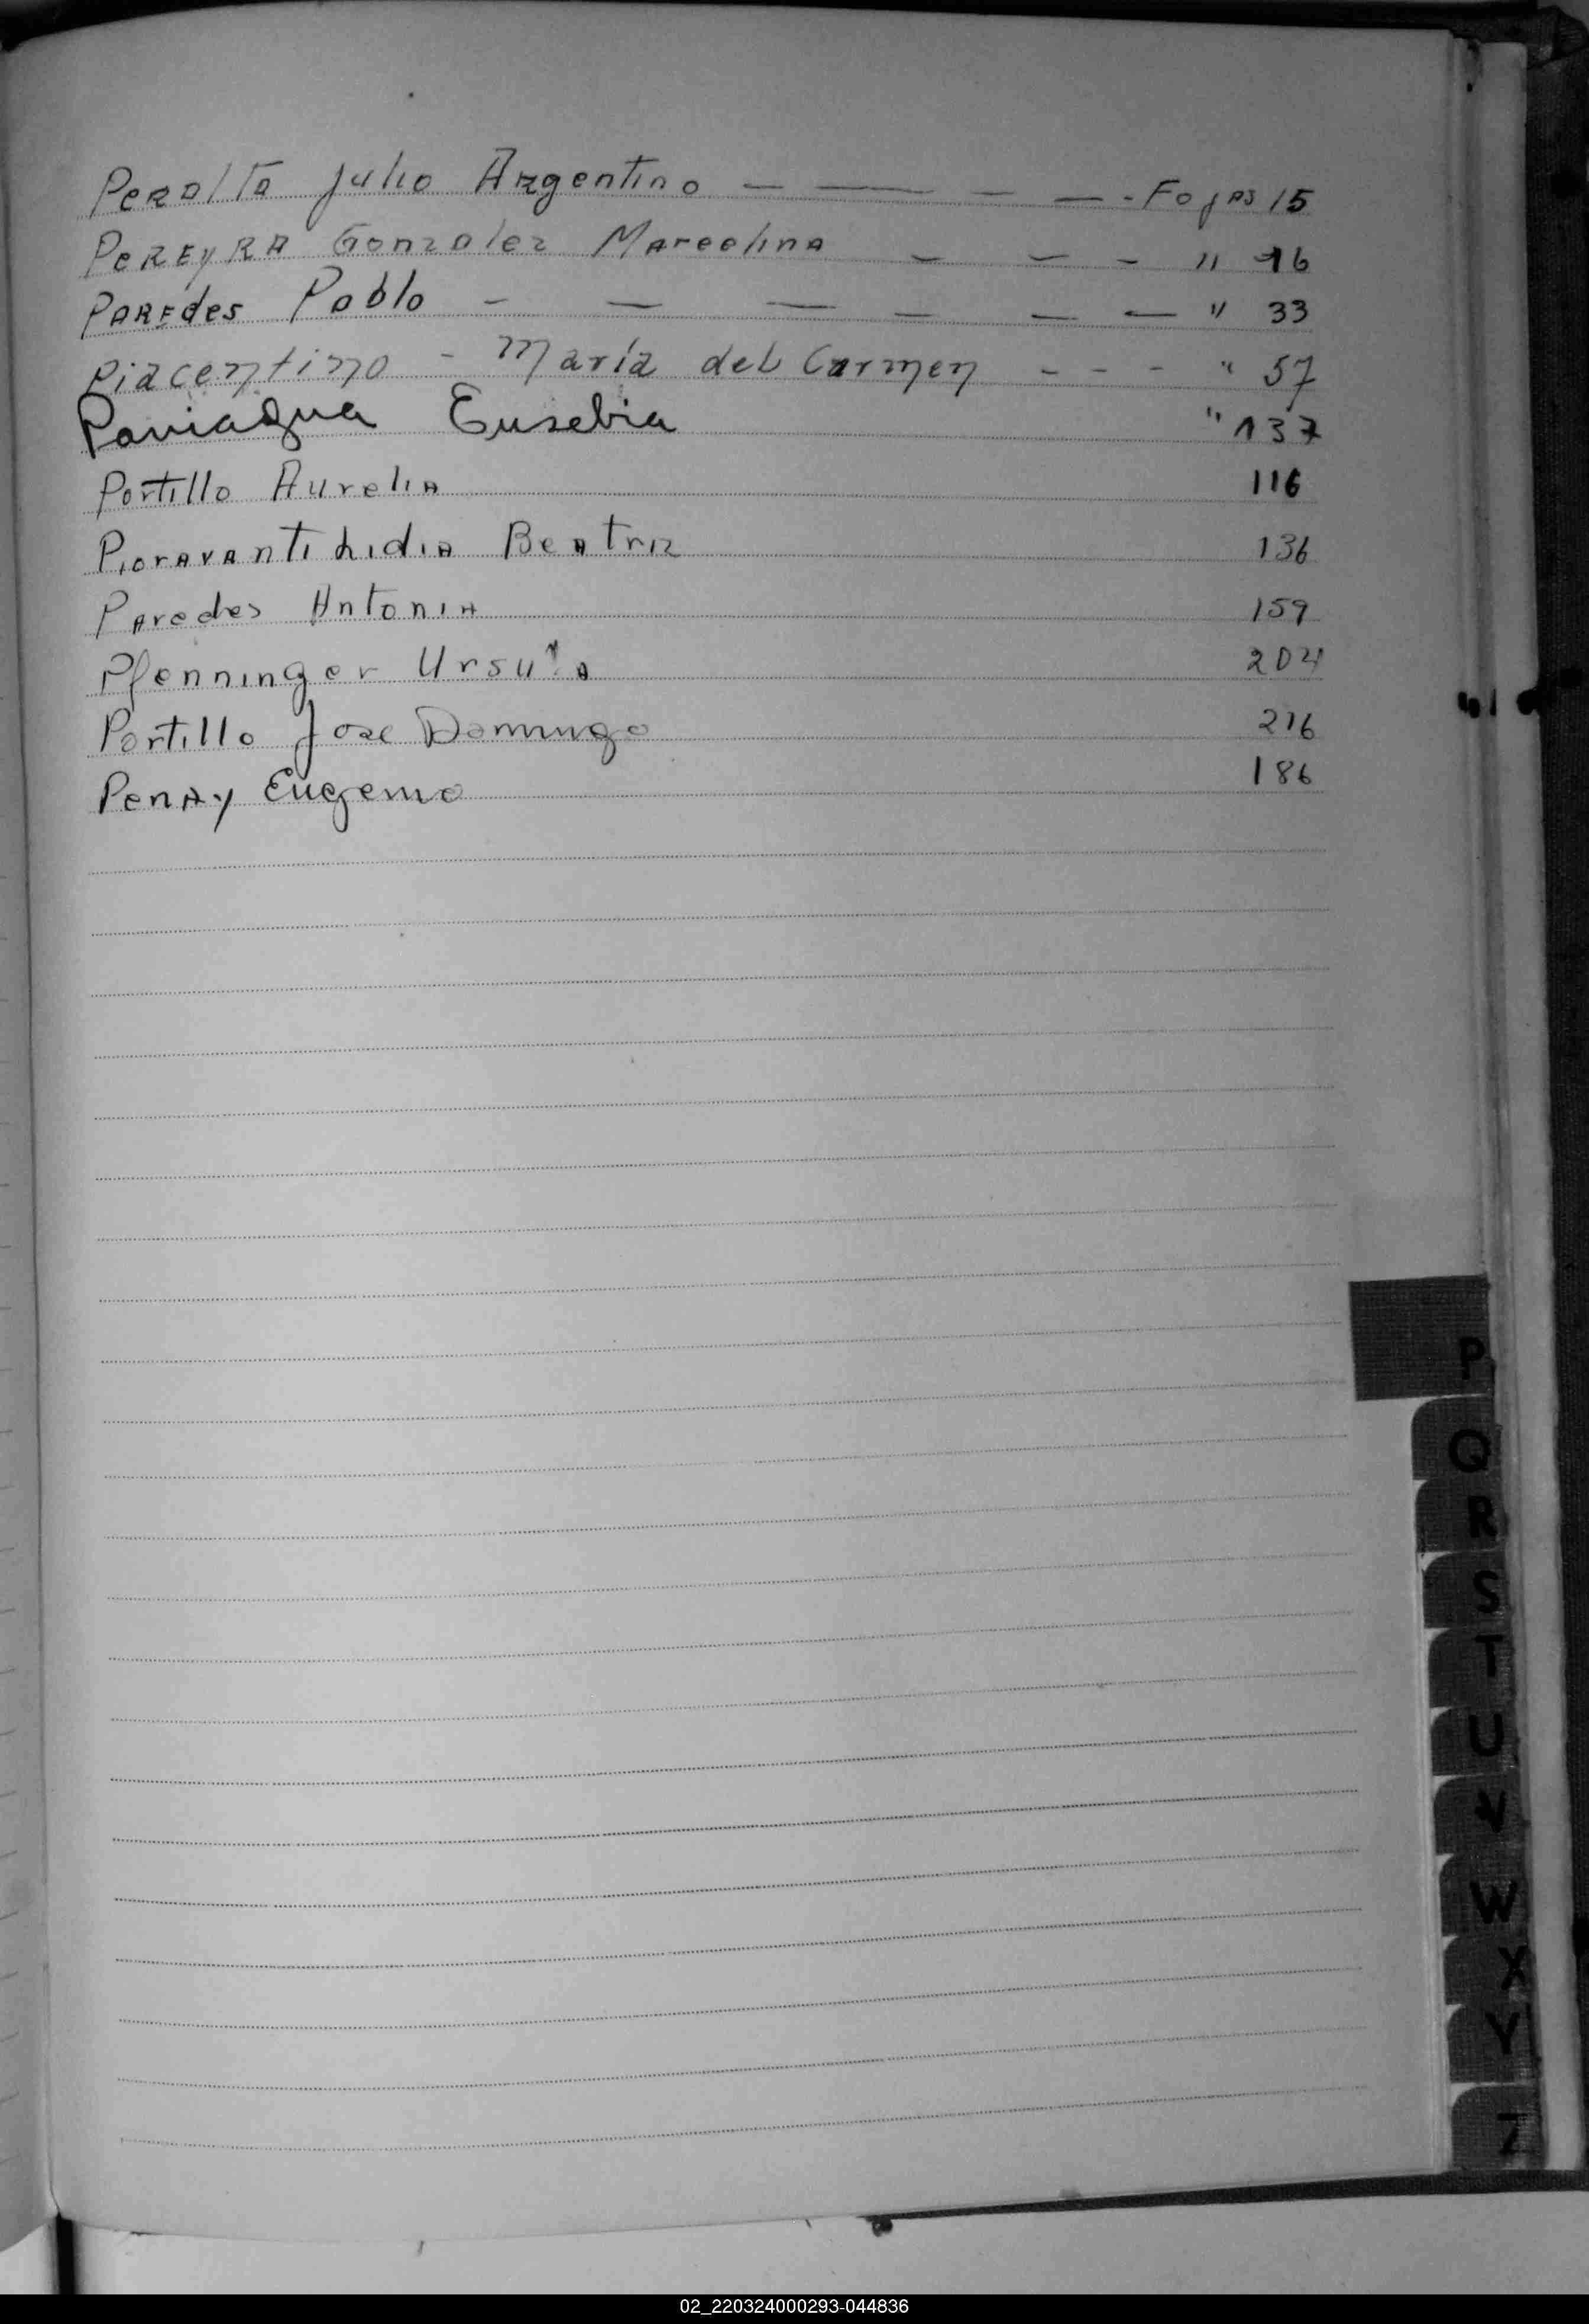 Peralta Julio Argentino — — — — - Fojas 15
Pereyra Gonzalez Marcelina — — - " 16
Paredes Pablo - — — — — — " 33
Piacentino - María del Carmen - - - " 57
Paniagua Eusebia " 137
Portillo Aurelia 116
Pioravanti Lidia Beatriz 136
Paredes Antonia 159
Pfenninger Ursula 204
Portillo Jose Domingo 216
Penay Eugenio 186
P
Q
R
S
T
U
V
W
X
Y
Z
02_220324000293-044836